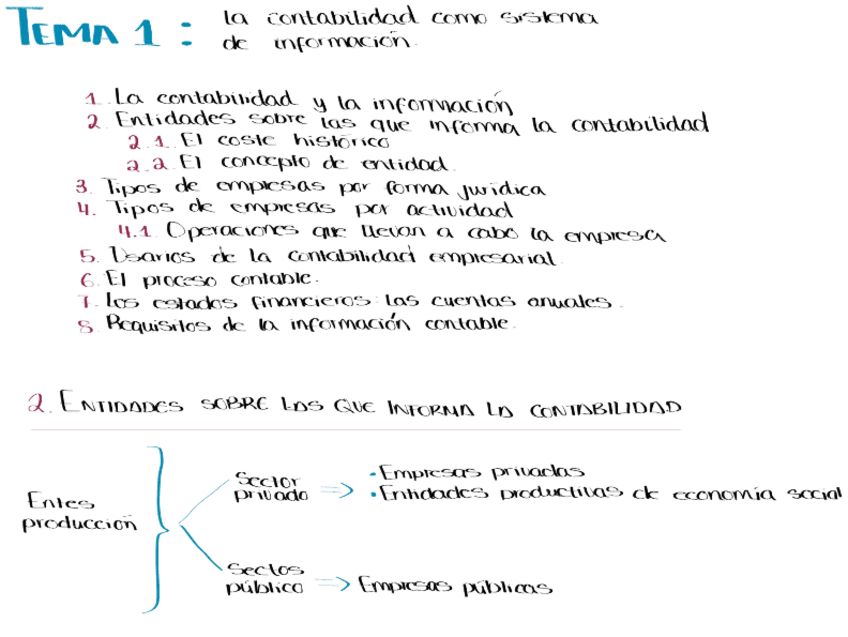 TEMA 1 : la contabilidad como sistema
de información.
1. La contabilidad y la información
2. Entidades sobre las que informa la contabilidad
2.1. El coste histórico
2.2. El concepto de entidad.
3. Tipos de empresas por forma jurídica
4. Tipos de empresas por actividad
4.1. Operaciones que llevan a cabo la empresa
5. Usarios de la contabilidad empresarial.
6. El proceso contable.
7. Los estados financieros: las cuentas anuales.
8. Requisitos de la información contable.
2. ENTIDADES SOBRE LAS QUE INFORMA LA CONTABILIDAD
Entes
producción
Sector
privado
• Empresas privadas
• Entidades productivas de economía social
Sectos
público
Empresas públicas